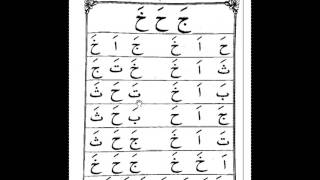 جَ حَ خَ
حَ اَ خَ جَ اَ خَ
ثَ اَ خَ خَ تَ جَ
بَ اَ خَ تَ حَ ثَ
جَ اَ حَ بَ حَ ثَ
تَ اَ خَ جَ حَ ثَ
اَ خَ خَ جَ حَ خَ